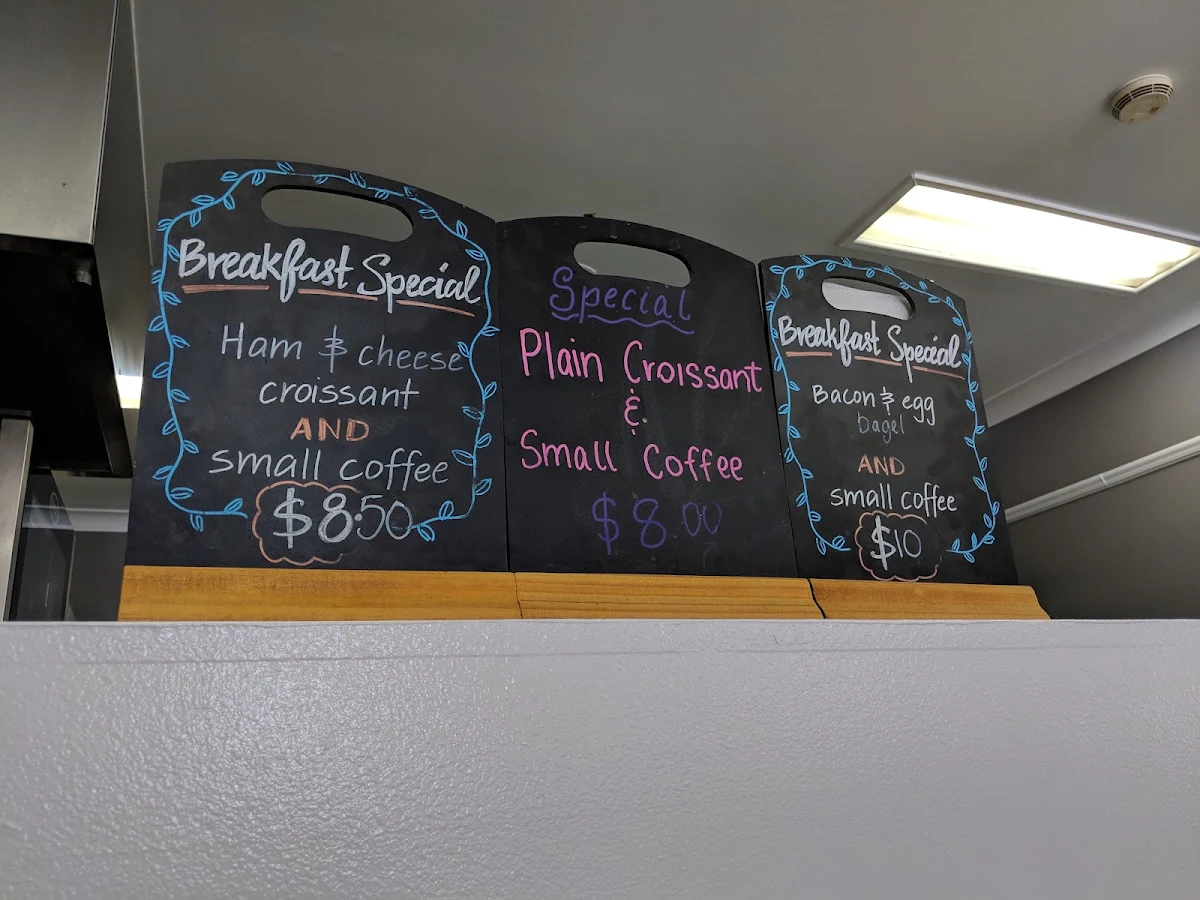 Breakfast Special
Ham & cheese
croissant
AND
small coffee
$8.50
Special
Plain Croissant
&
Small Coffee
$8.00
Breakfast Special
Bacon & egg
Bagel
AND
small coffee
$10